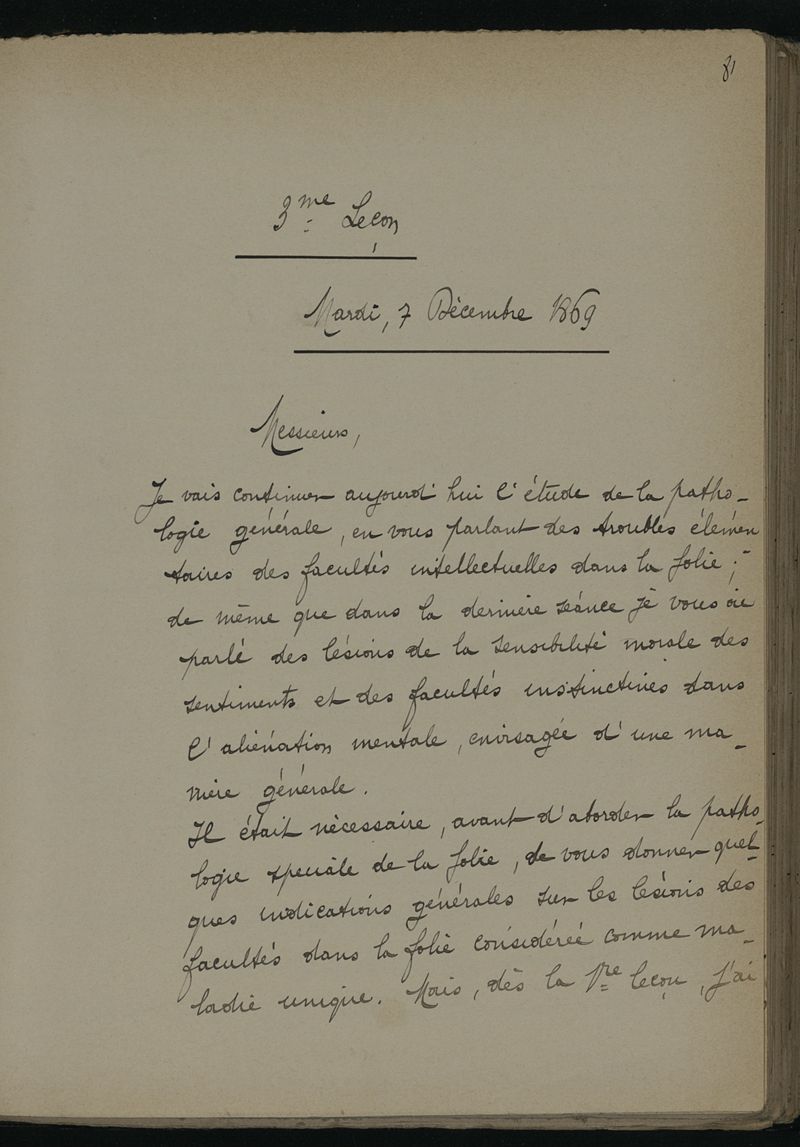 81
3me Leçon
Mardi, 7 Décembre 1869
Messieurs,
Je vais continuer aujourd'hui l'étude de la patho-
logie générale, en vous parlant des troubles élémen
taires des facultés intellectuelles dans la folie ;-
de même que dans la dernière séance je vous ai
parlé des lésions de la sensibilité morale des
sentiments et des facultés instinctives dans
l'aliénation mentale, envisagée d'une ma-
nière générale.
Il était nécessaire, avant d'aborder la patho-
logie spéciale de la folie, de vous donner quel-
ques indications générales sur les lésions des
facultés dans la folie considérée comme ma-
ladie unique. Mais, dès la 1re leçon, j'ai